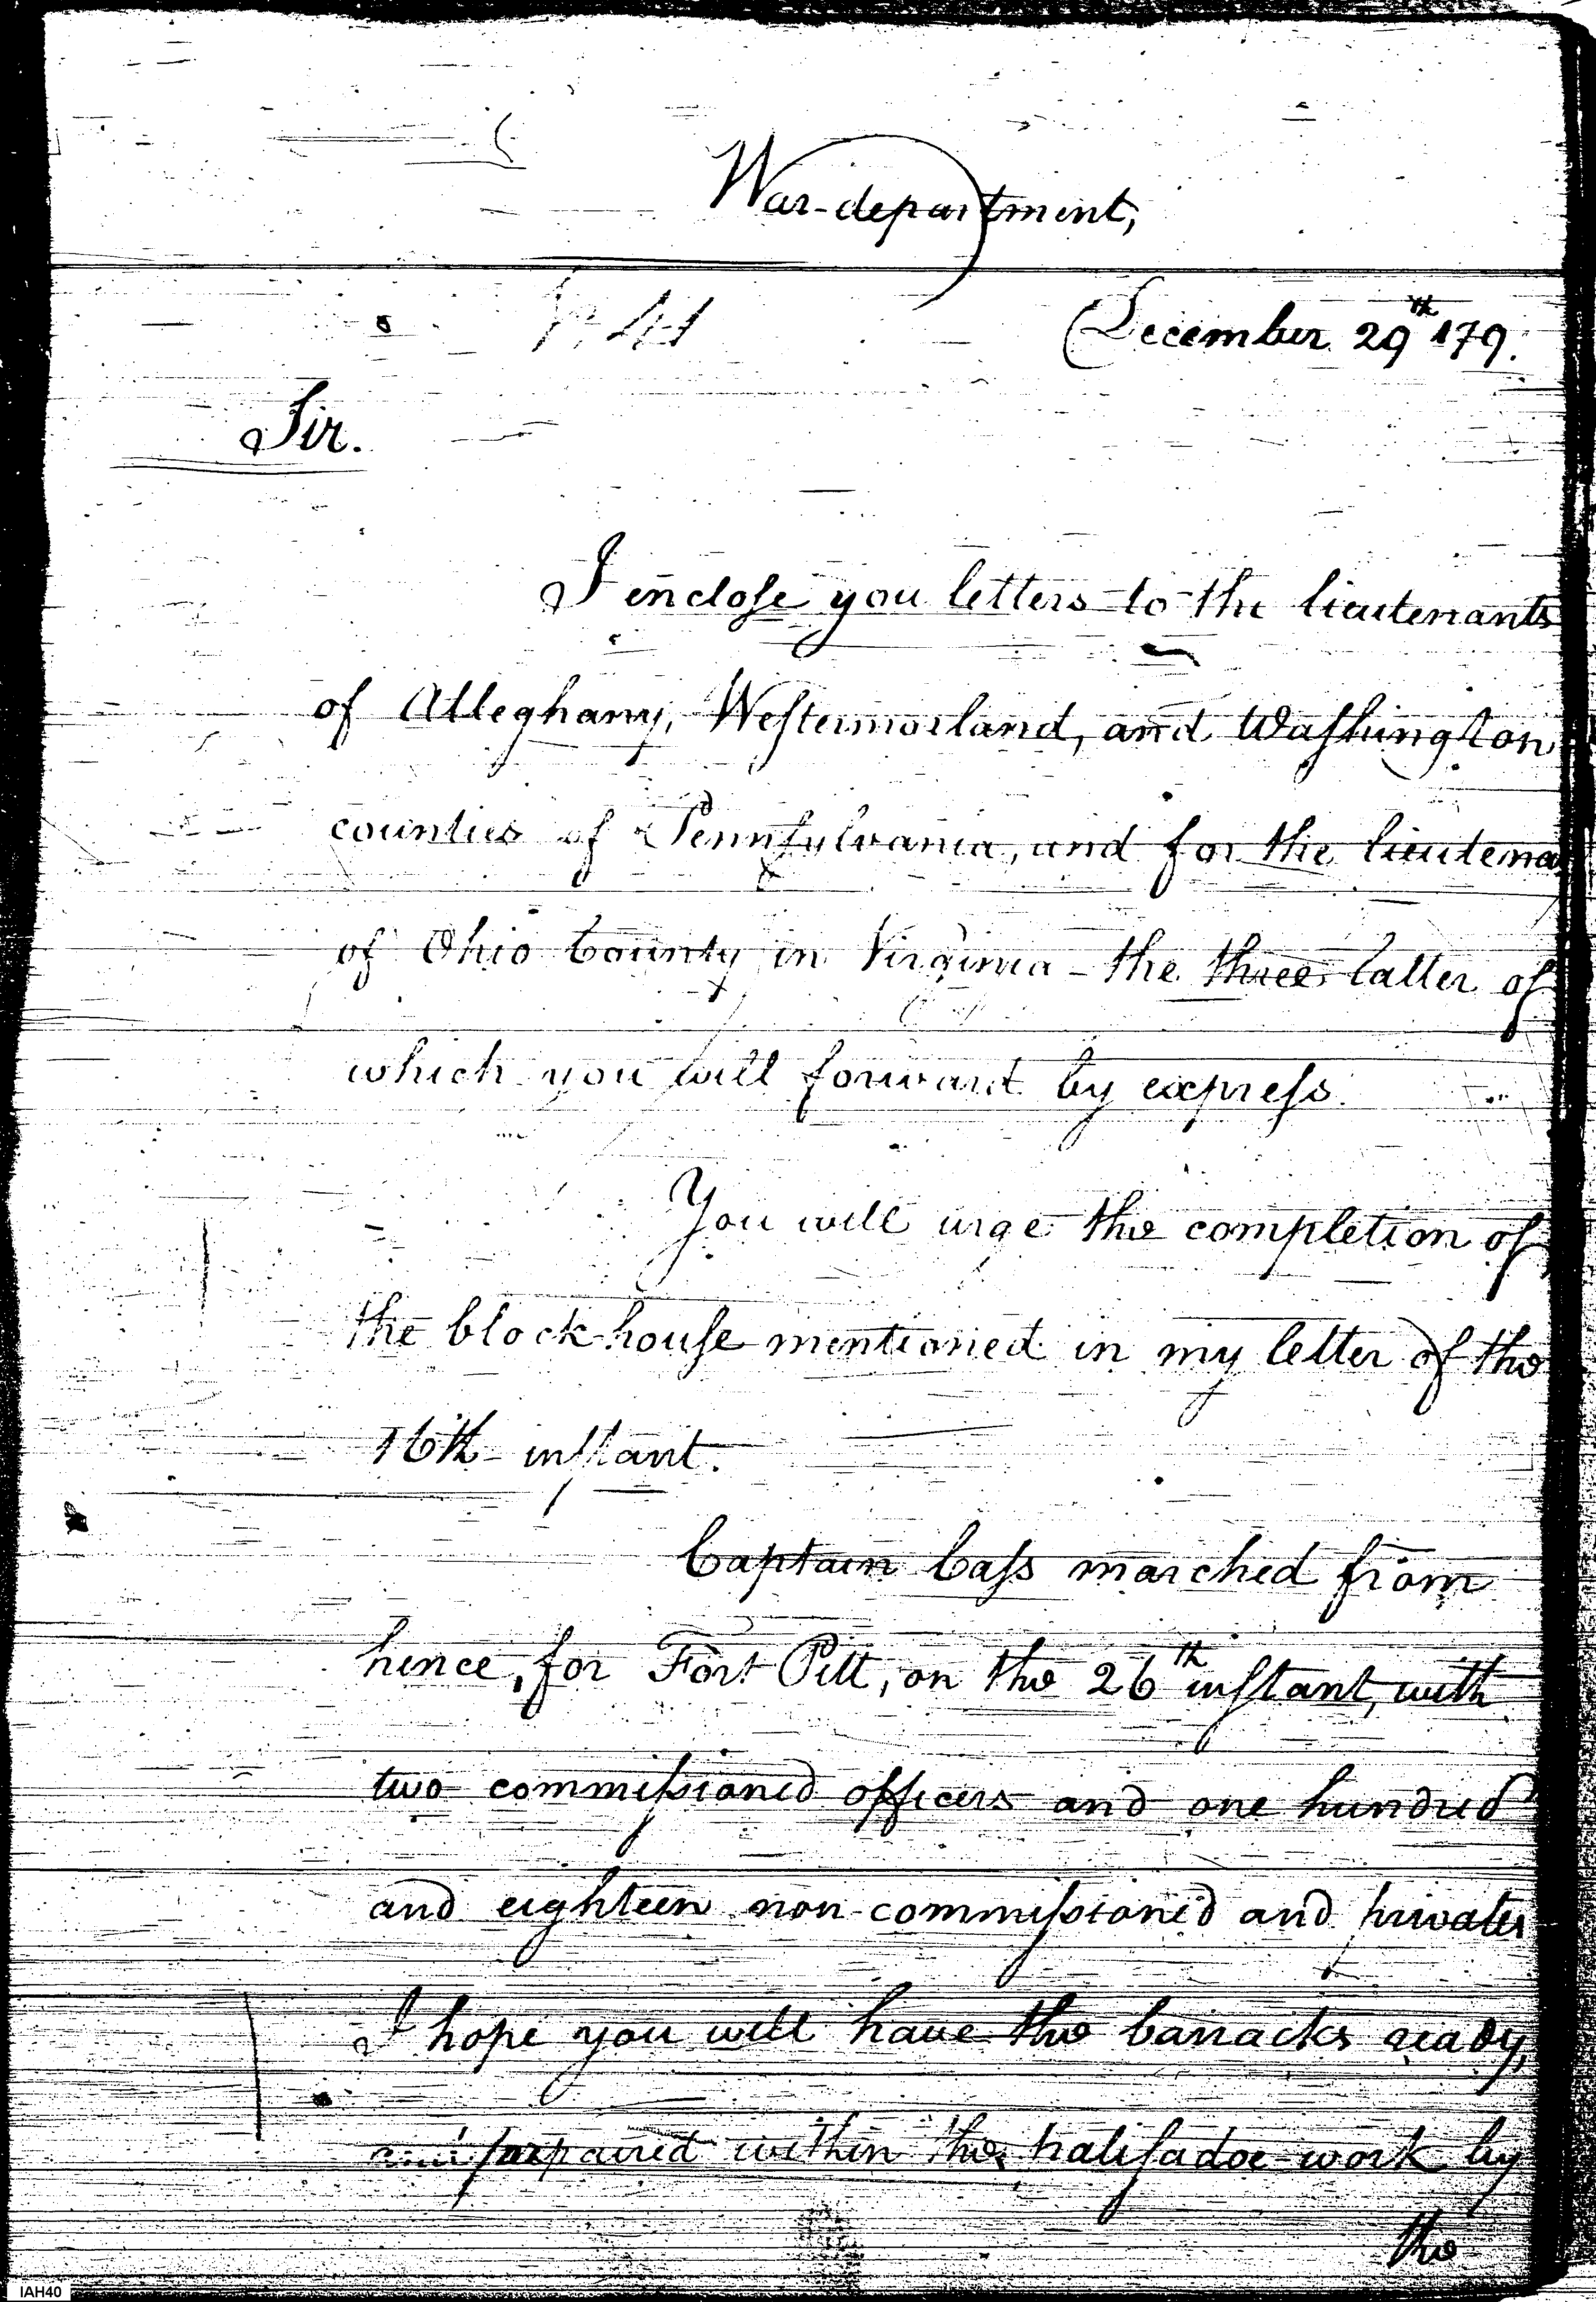 War-department,
December 29th 179.
Sir.
I enclose you letters to the lieutenants
of Alleghany, Westermorland, and Washington
counties of Pennsylvania, and for the lieutena
of Ohio County in Virginia - the three latter of
which you will forward by express.
You will urge the completion of
the block-house mentioned in my letter of the
16th instant.
Captain Cass marched from
hence, for Fort Pitt, on the 26th instant, with
two commissioned officers and one hundred
and eighteen non-commissioned and privates
I hope you will have the barracks ready,
prepared within the palisadoe work by
the
IAH40